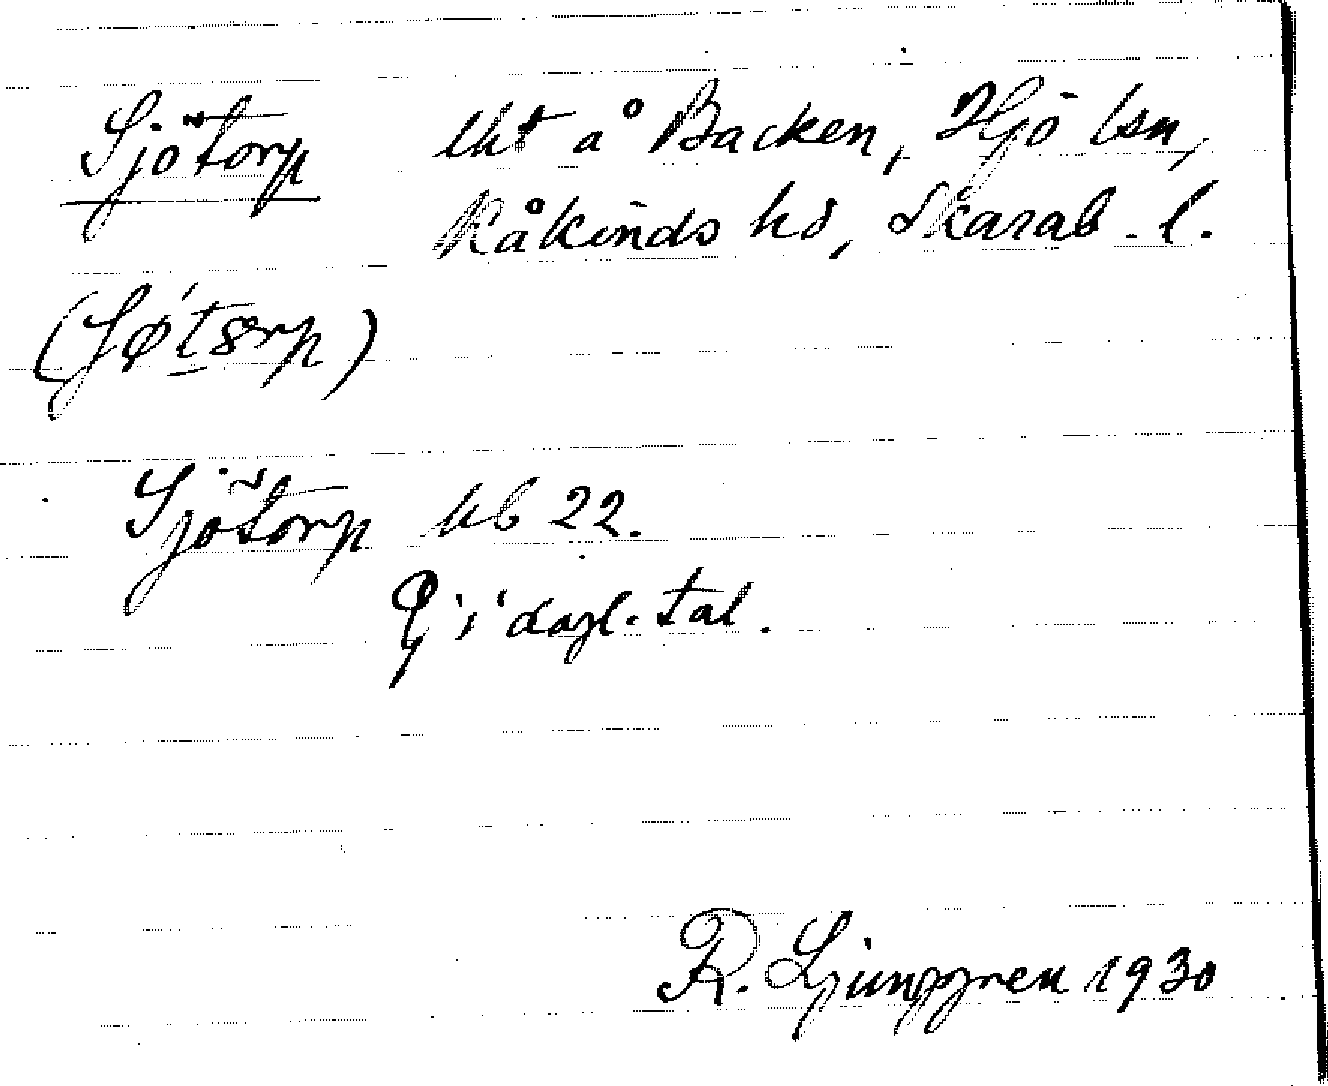 Sjötorp lht å Backen, Hjo lsn,
Kåkinds hd, Skarab. l.
Sjötorp hb 22.
i dagl. tal.
R. Ljunggren 1930